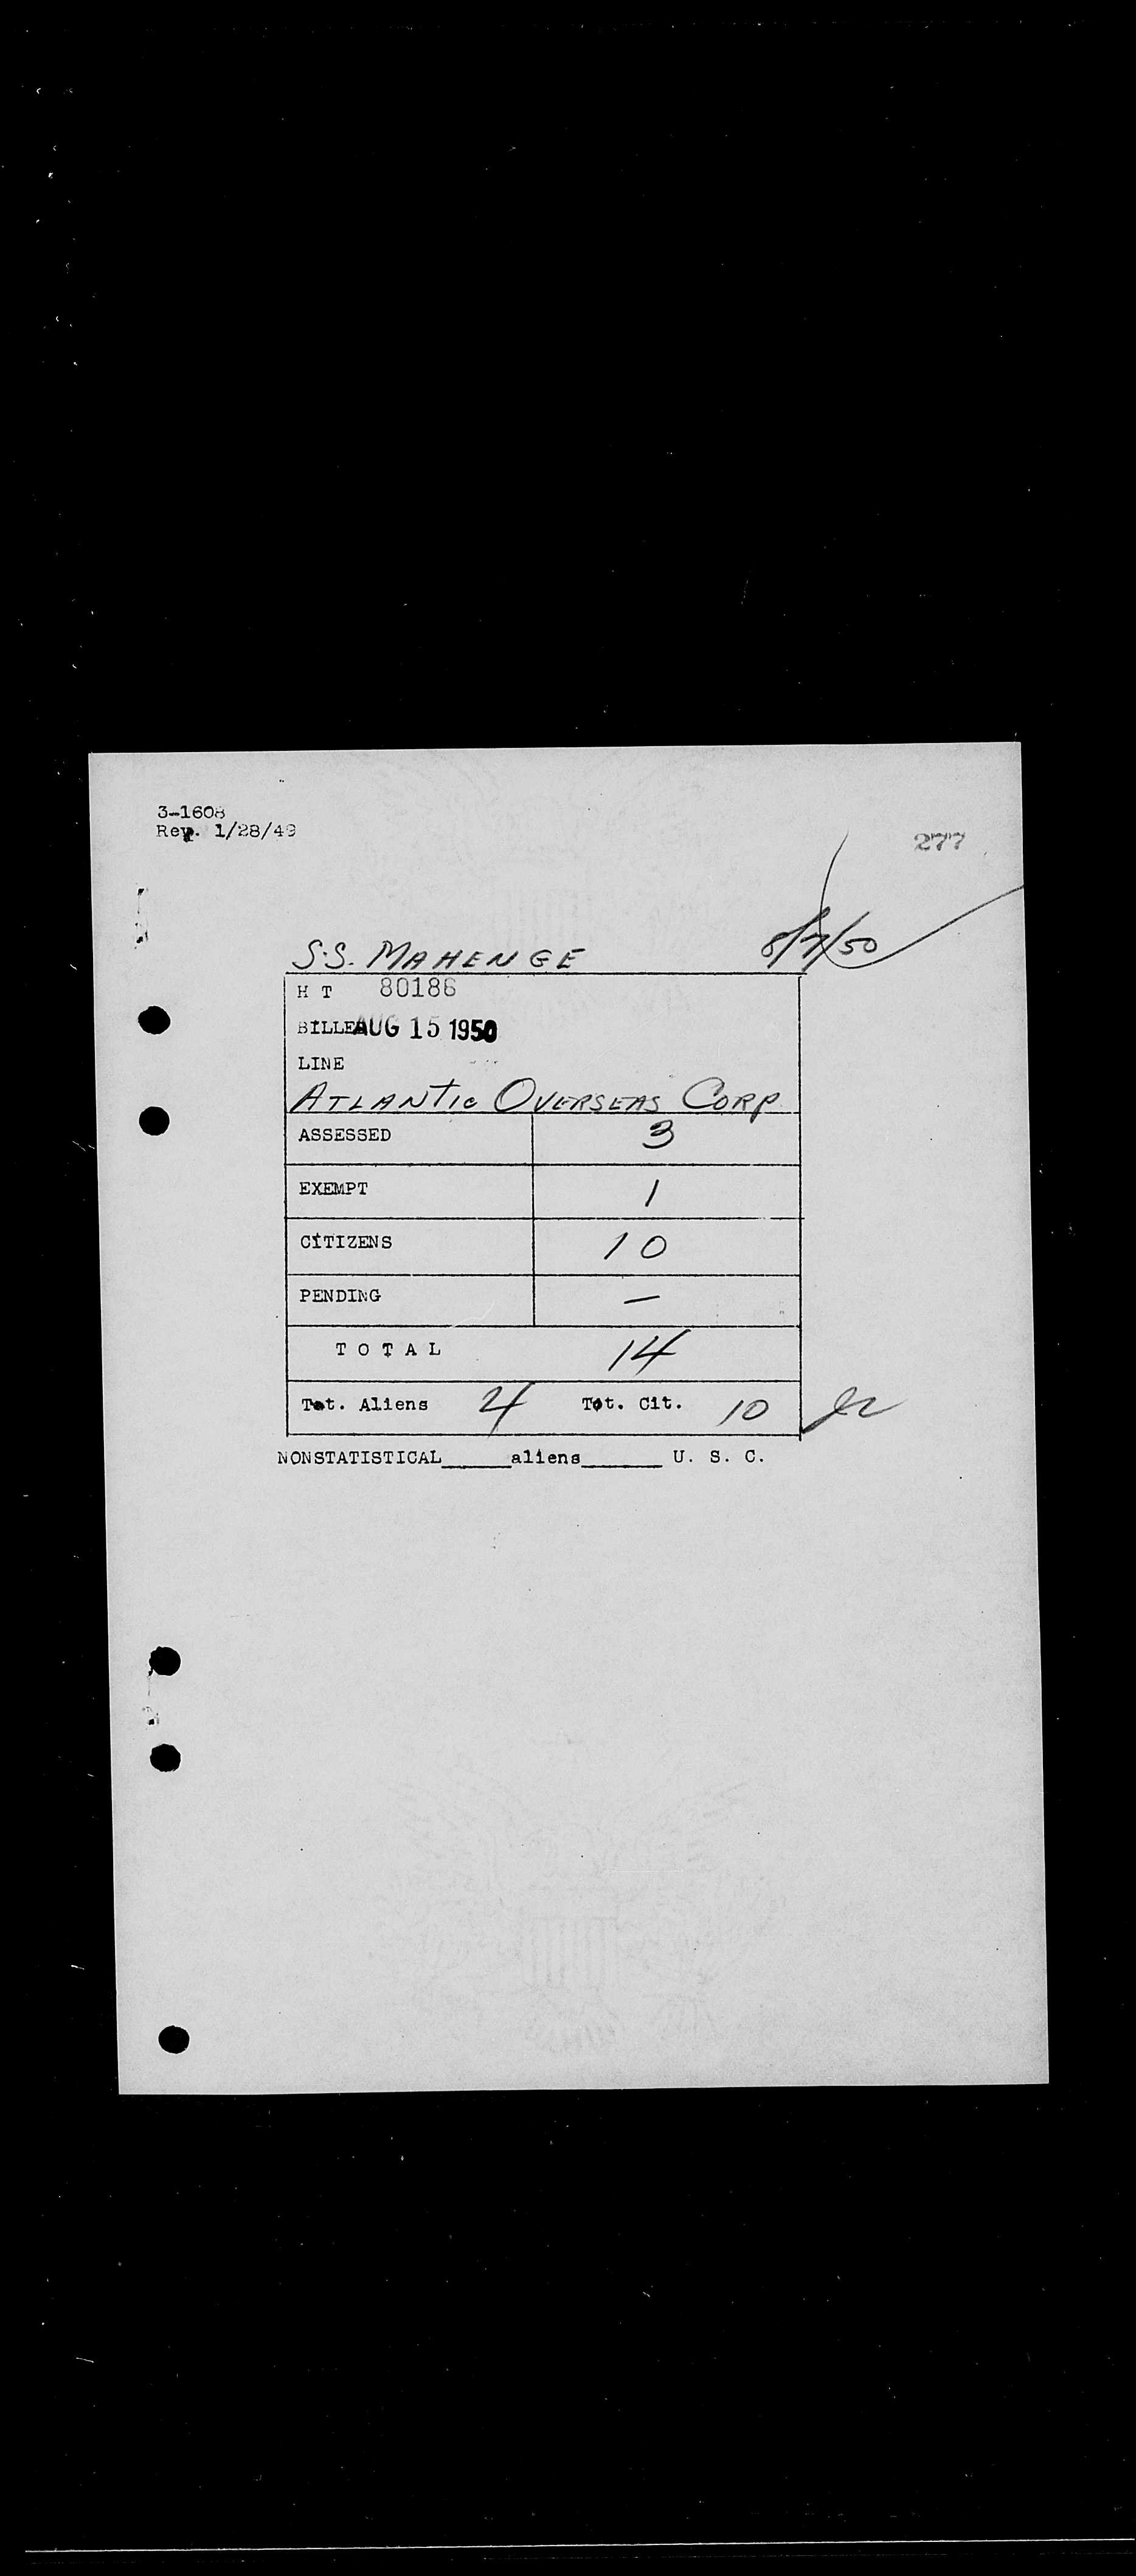 3-1608
Rev. 1/28/49
277
S.S. MAHENGE 8/7/50
H T 80186
BILLED AUG 15 1950
LINE
ATLANTIC OVERSEAS CORP
ASSESSED 3
EXEMPT 1
CITIZENS 10
PENDING —
TOTAL 14
Tot. Aliens 4 Tot. Cit. 10
NONSTATISTICAL______aliens_______ U. S. C.